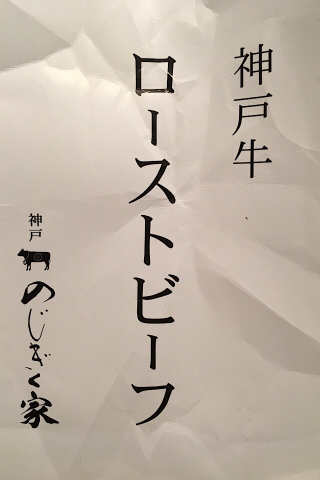 神戸牛
ローストビーフ
神戸
のじぎく家